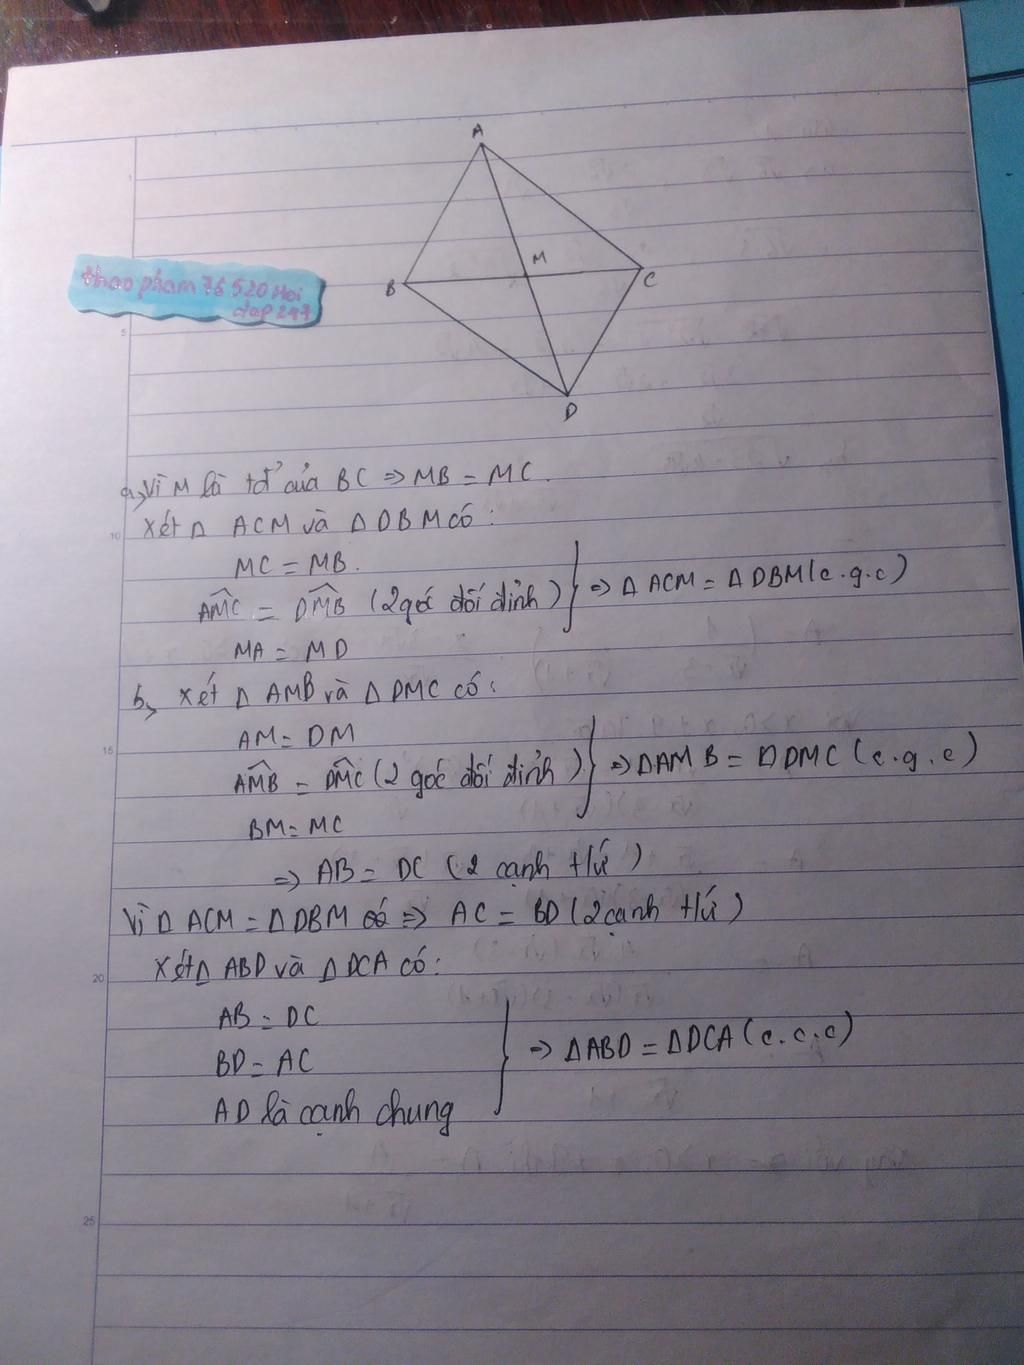 A
M
B
C
D
thao pham 76520 Hoi
dap 247
1
5
a, Vì M là tđ' của BC => MB = MC.
10
Xét Δ ACM và Δ DBM có:
MC = MB.
AMC = DMB (2 góc đối đỉnh) } => Δ ACM = Δ DBM (c.g.c)
MA = MD
b, Xét Δ AMB và Δ DMC có:
15
AM = DM
AMB = DMC (2 góc đối đỉnh) } => ΔAMB = ΔDMC (c.g.c)
BM = MC
=> AB = DC (2 cạnh t/ứ)
Vì Δ ACM = Δ DBM => AC = BD (2 cạnh t/ứ)
20
Xét Δ ABD và Δ DCA có:
AB = DC
BD = AC } => ΔABD = ΔDCA (c.c.c)
AD là cạnh chung
25